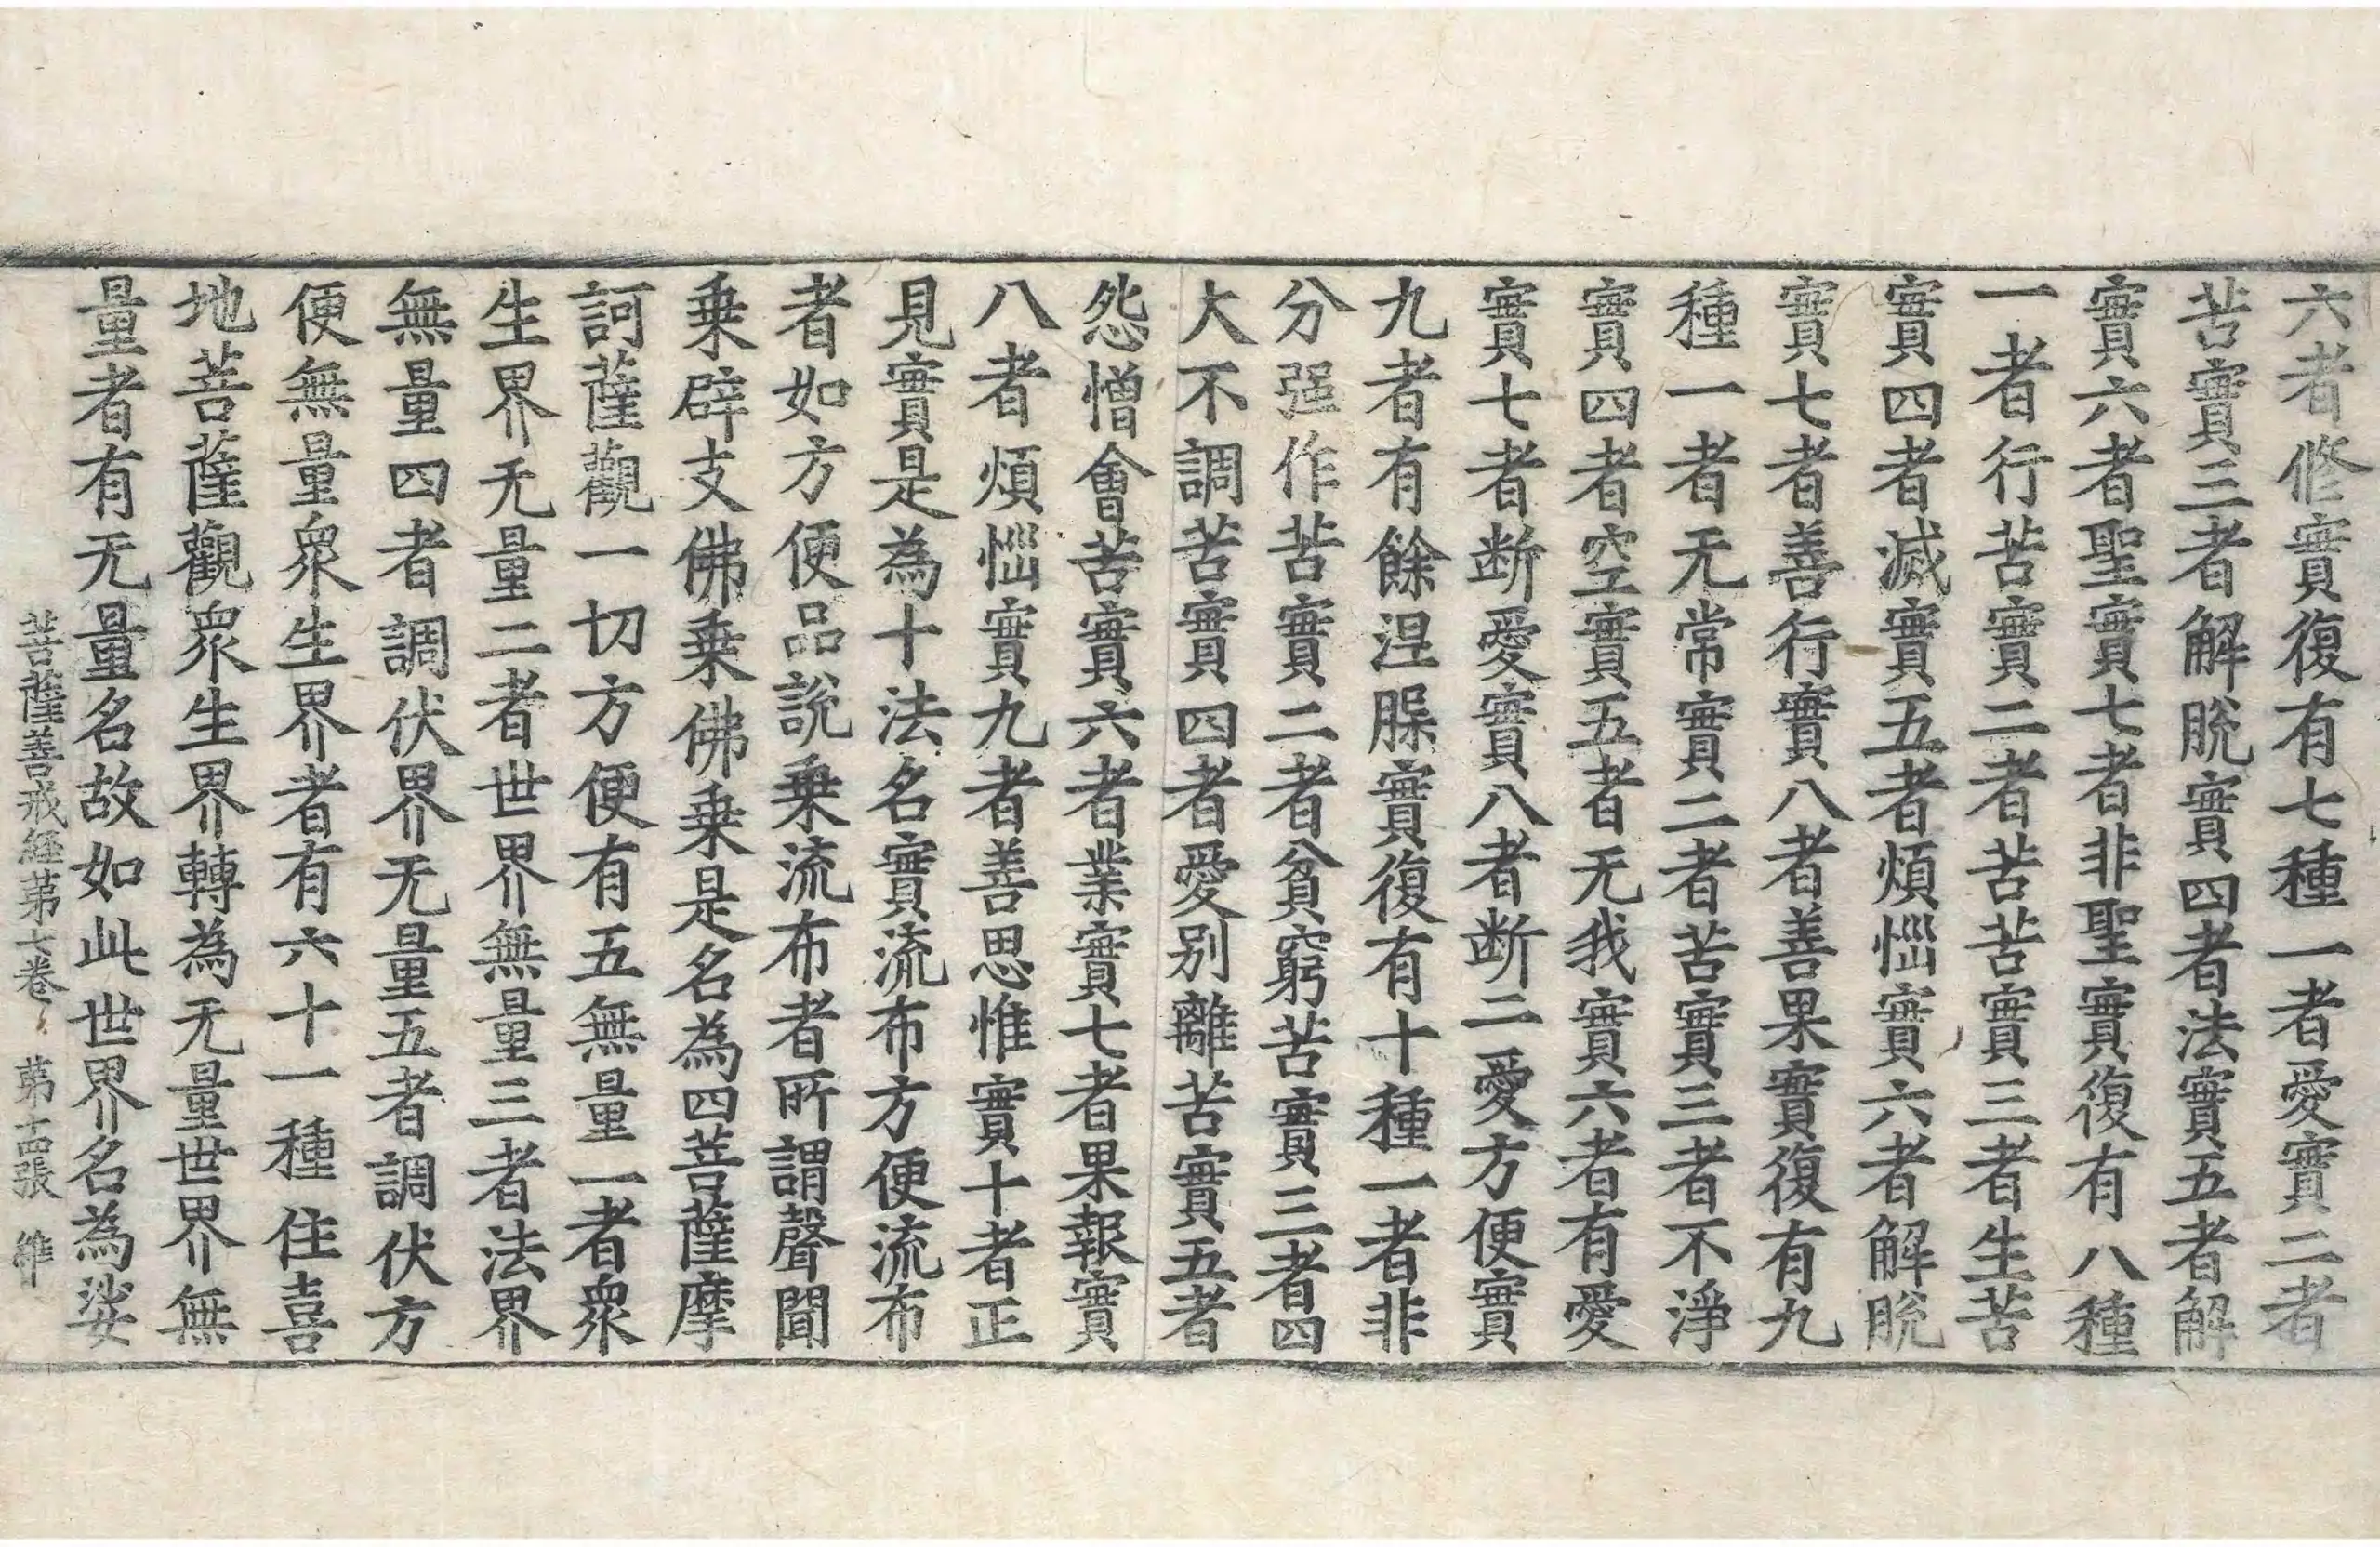 六者修實復有七種一者愛實二者
苦實三者解脫實四者法實五者解
實六者聖實七者非聖實復有八種
一者行苦實二者苦苦實三者生苦
實四者滅實五者煩惱實六者解脫
實七者善行實八者善果實復有九
種一者无常實二者苦實三者不淨
實四者空實五者无我實六者有愛
實七者断愛實八者断二愛方便實
九者有餘涅槃實復有十種一者非
分强作苦實二者貧窮苦實三者四
大不調苦實四者愛別離苦實五者
怨憎會苦實六者業實七者果報實
八者煩惱實九者善思惟實十者正
見實是為十法名實流布方便流布
者如方便品說乗流布者所謂聲聞
乗辟支佛乗佛乗是名為四菩薩摩
訶薩觀一切方便有五無量一者衆
生界无量二者世界無量三者法界
無量四者調伏界无量五者調伏方
便無量衆生界者有六十一種住喜
地菩薩觀衆生界轉為无量世界無
量者有无量名故如此世界名為娑
菩薩善戒経苐七卷 苐十四張 維